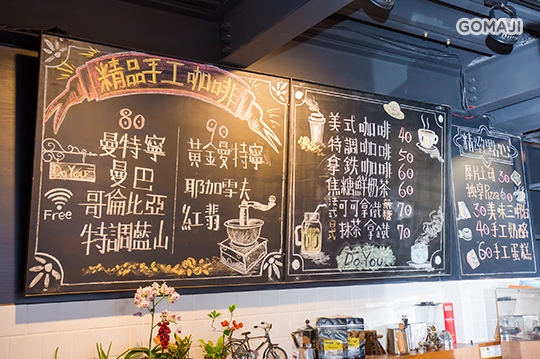 GOMAJI
精品手工咖啡
80
曼特寧
曼巴
哥倫比亞
特調藍山
90
黃金曼特寧
耶加雪夫
紅翡
Do You
Free
美式咖啡 40
特調咖啡 50
拿鐵咖啡 60
焦糖鮮奶茶 60
法式 可可拿鐵 70
日式 抹茶拿鐵
Do You
30
60
30 美味三明治
40 手工奶酪
60 手工蛋糕